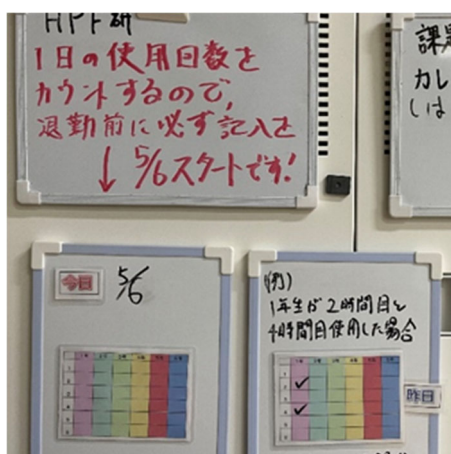 HPF研
1日の使用回数を
カウントするので,
退勤前に必ず記入を
↓ 5/6スタートです!
課題
カレ
しは
今日
5/6
(例)
1年生が2時間目と
4時間目使用した場合
昨日